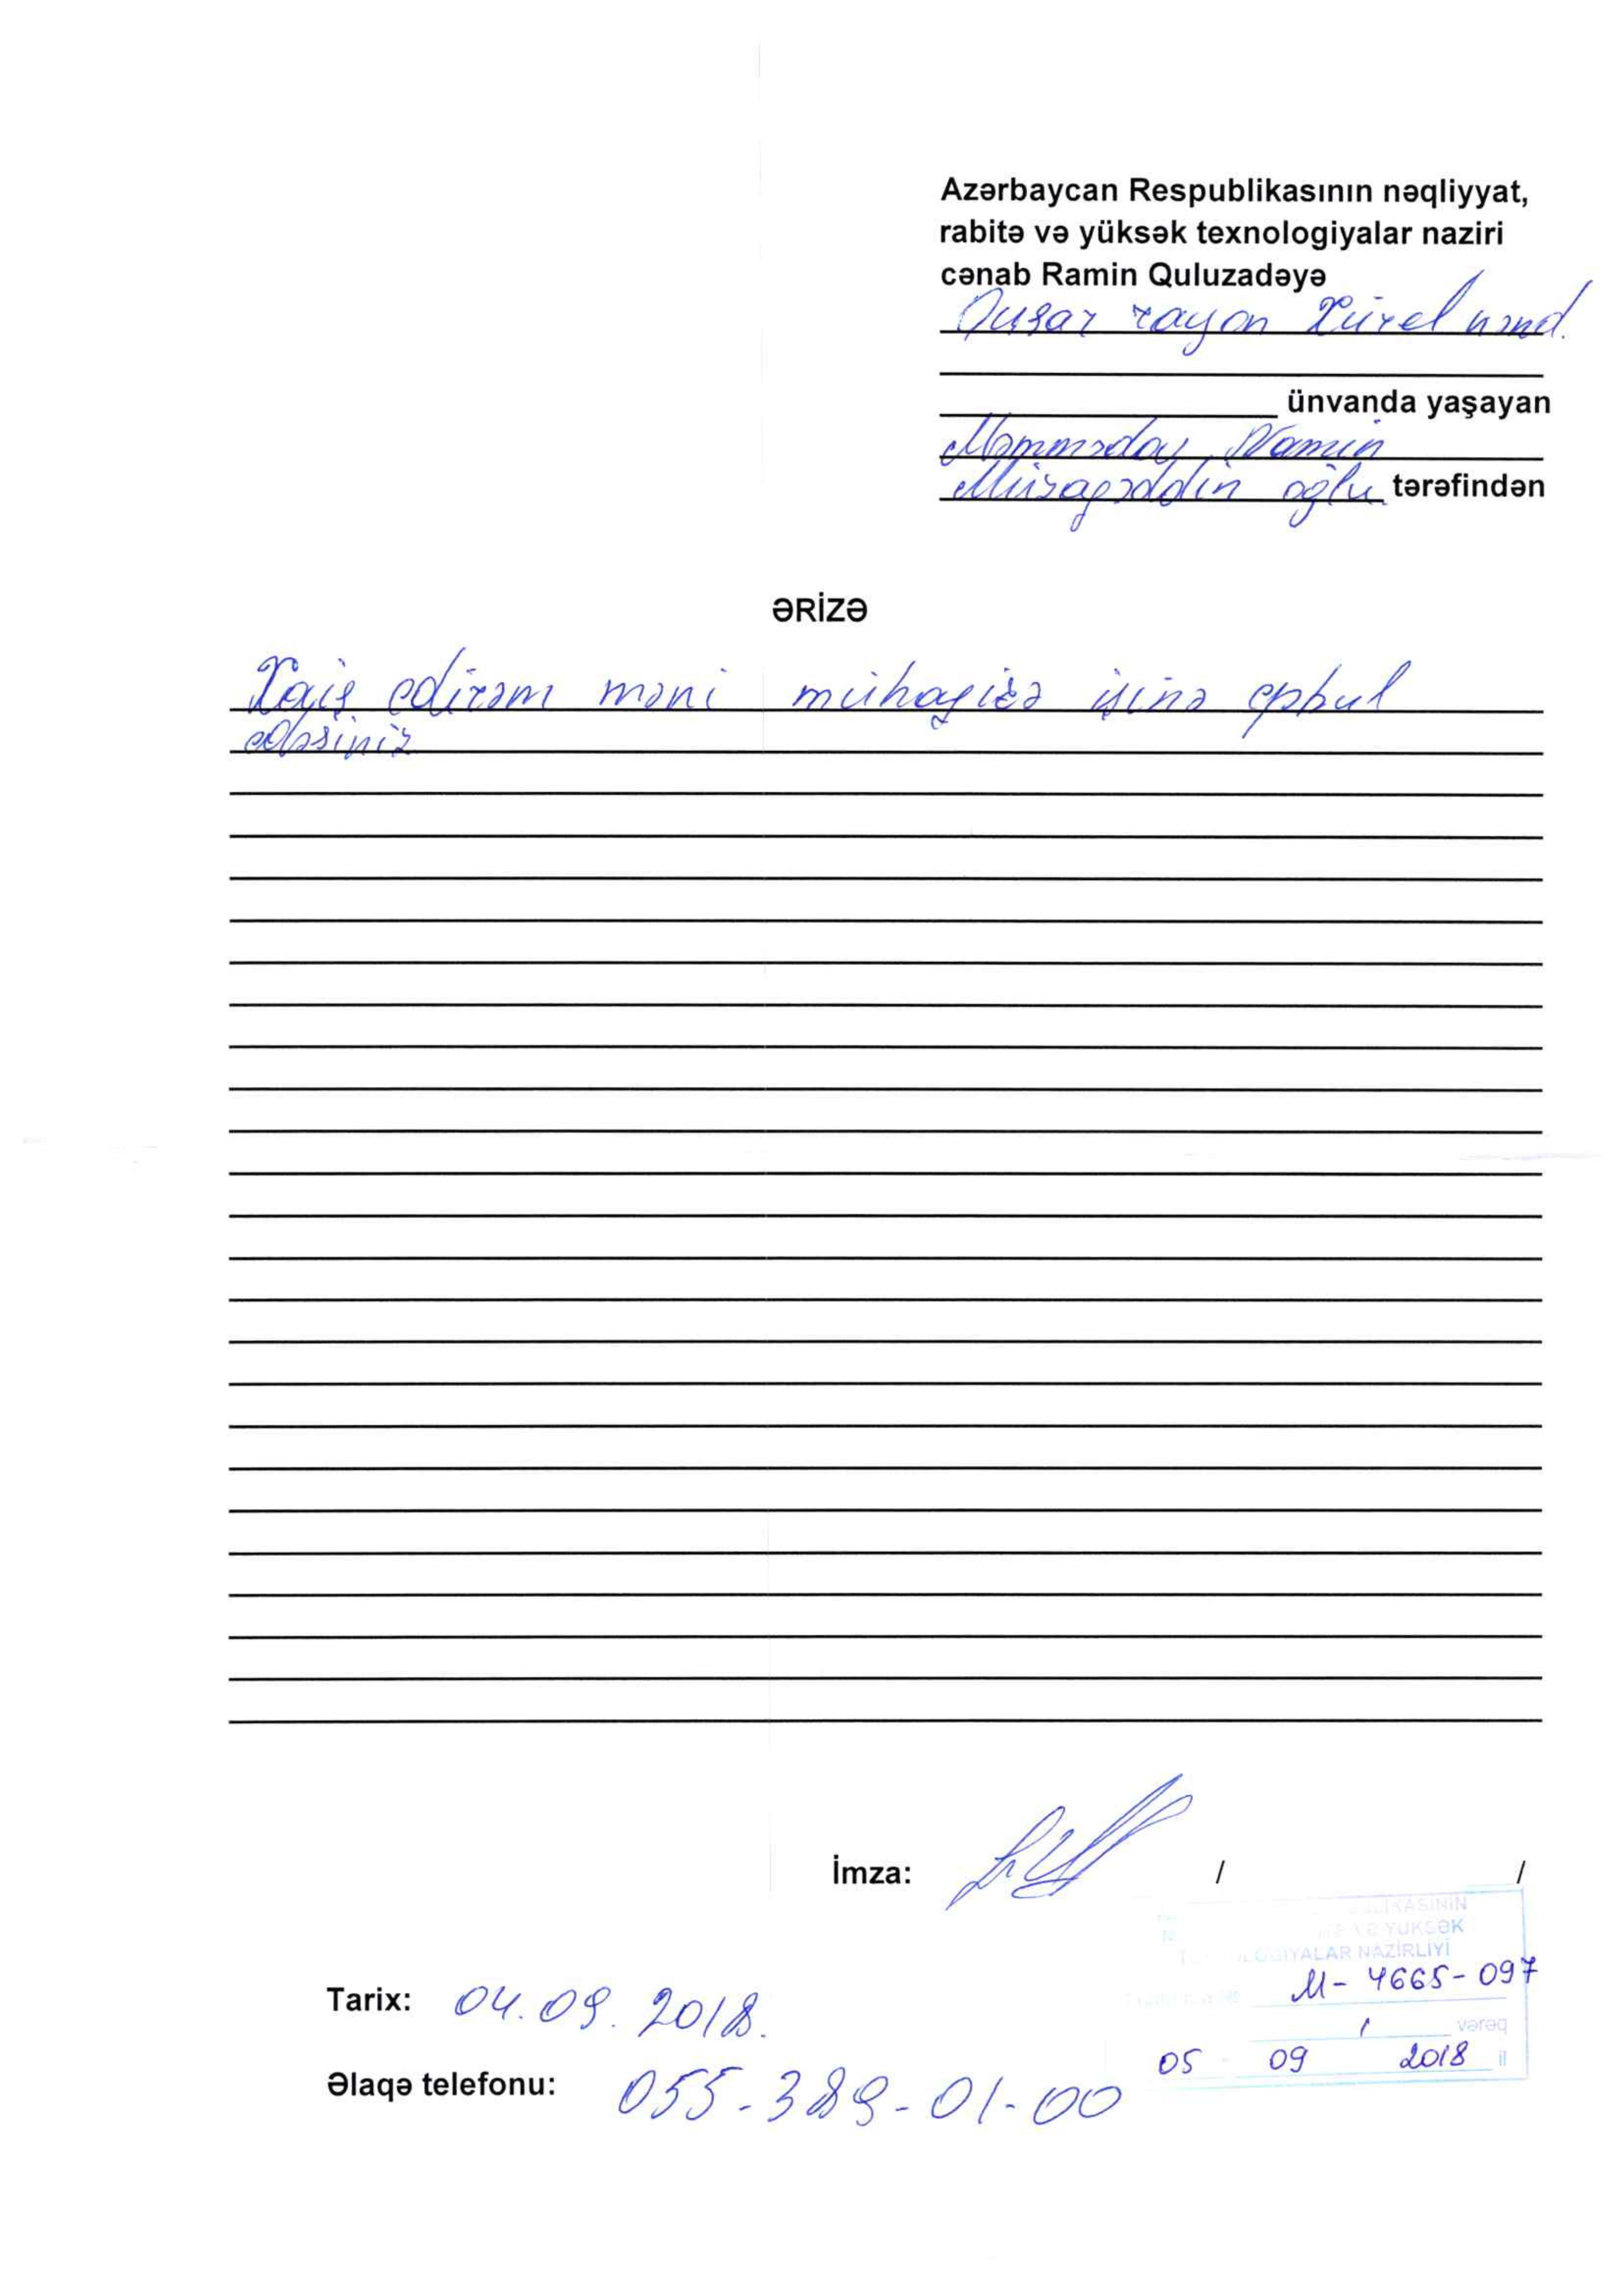 Azərbaycan Respublikasının nəqliyyat,
rabitə və yüksək texnologiyalar naziri
cənab Ramin Quluzadəyə
Qusar rayon Xürel kənd.
ünvanda yaşayan
Məmmədov Namin
Müzafəddin oğlu tərəfindən
ƏRİZƏ
Xaiş edirəm məni mühafizə işinə qəbul
edəsiniz
İmza: / /
YÜKSƏK
TEXNOLOGİYALAR NAZİRLİYİ
M- 4665-097
1 vərəq
05 09 2018 il
Tarix: 04.09.2018.
Əlaqə telefonu: 055-389-01-00